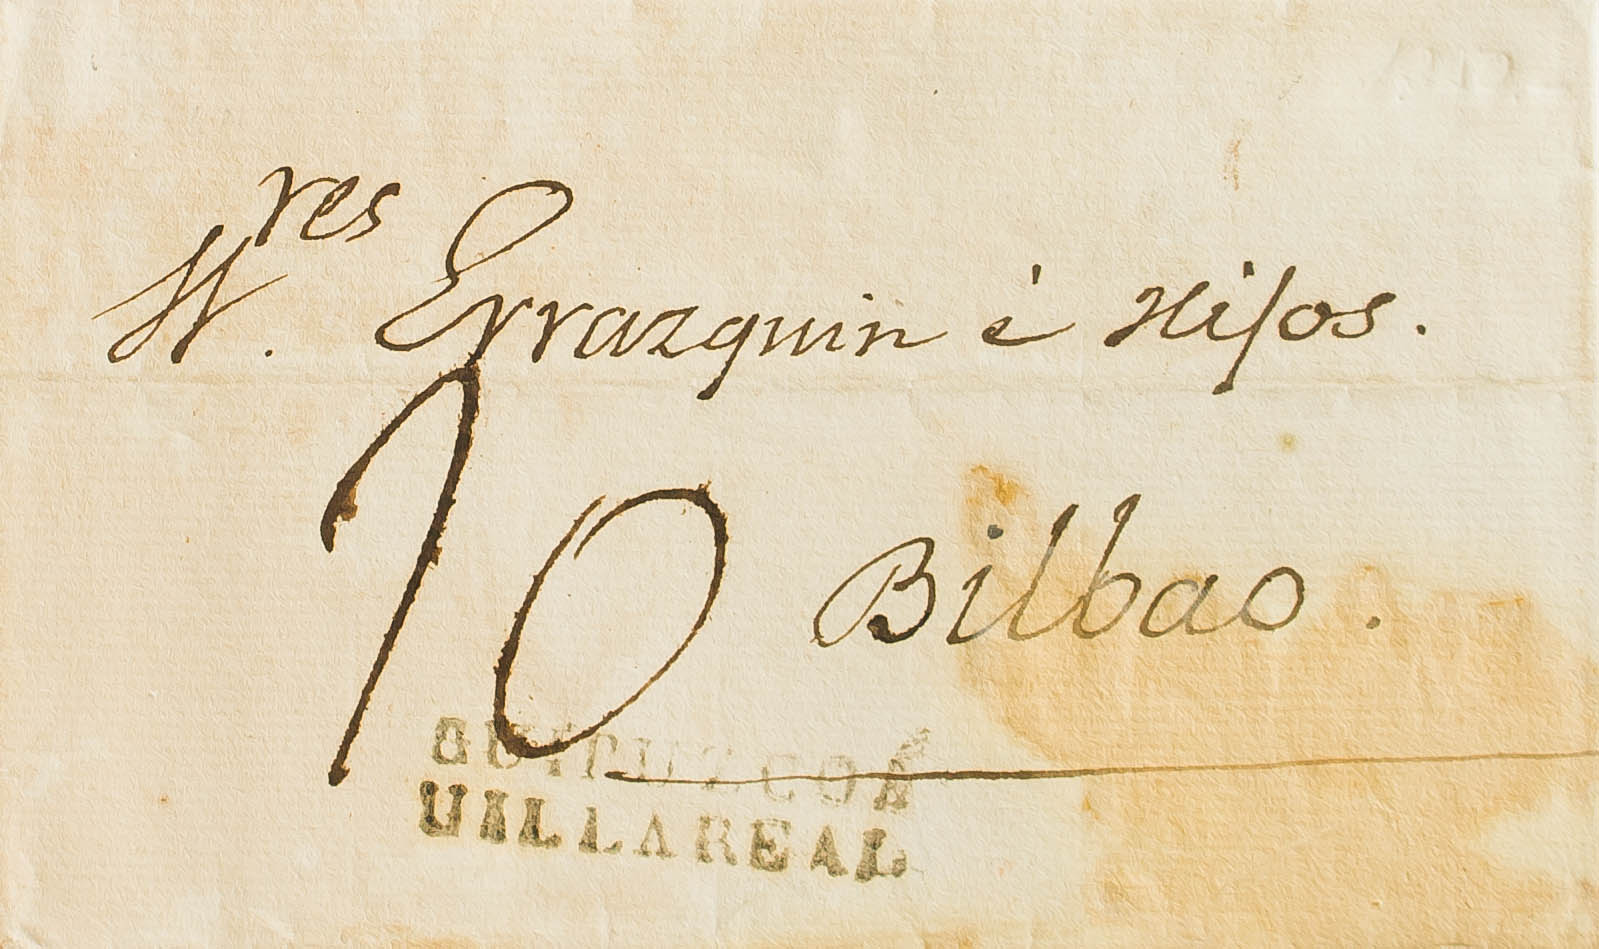 Sres. Errazquin è Hijos.
10
Bilbao.
GUIPUZCOA
UILLAREAL